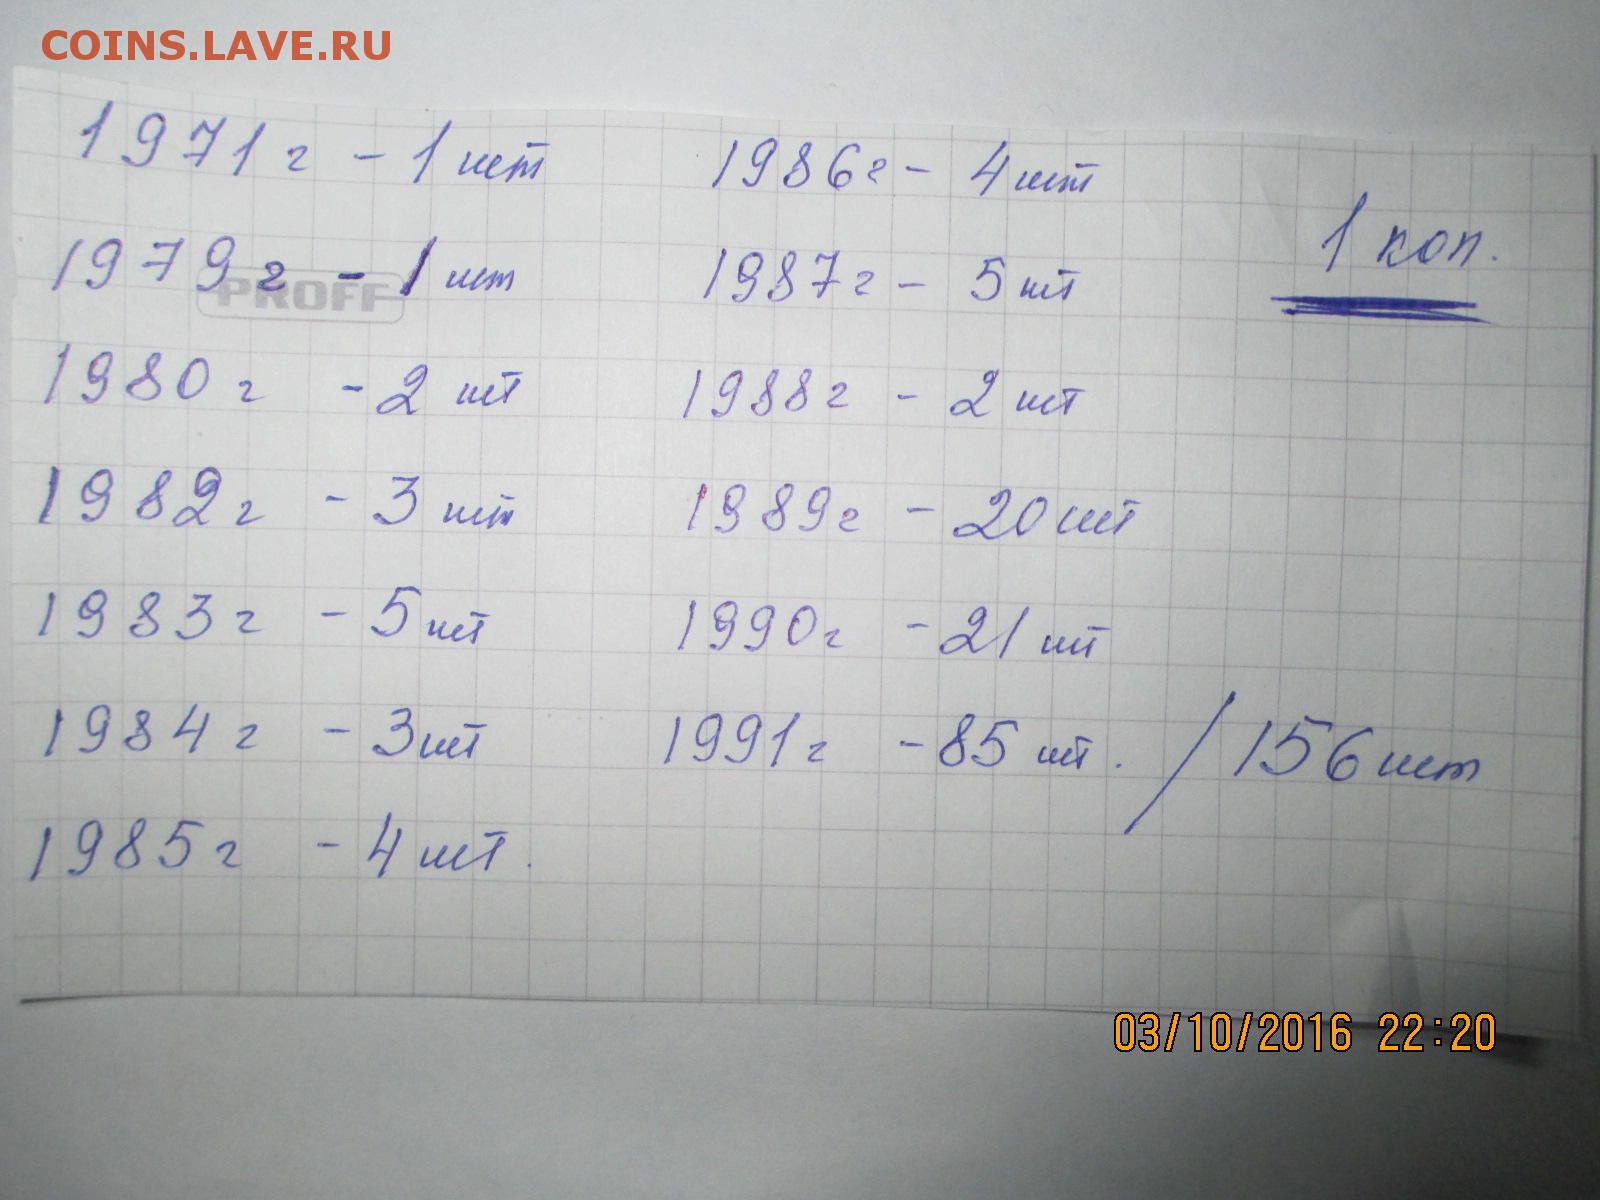 COINS.LAVE.RU
1971г - 1 шт
1979г - 1 шт
PROFF
1980г - 2 шт
1982г - 3 шт
1983г - 5 шт
1984г - 3 шт
1985г - 4 шт.
1986г - 4 шт
1987г - 5 шт
1988г - 2 шт
1989г - 20 шт
1990г - 21 шт
1991г - 85 шт. / 156 шт
1 коп.
03/10/2016 22:20